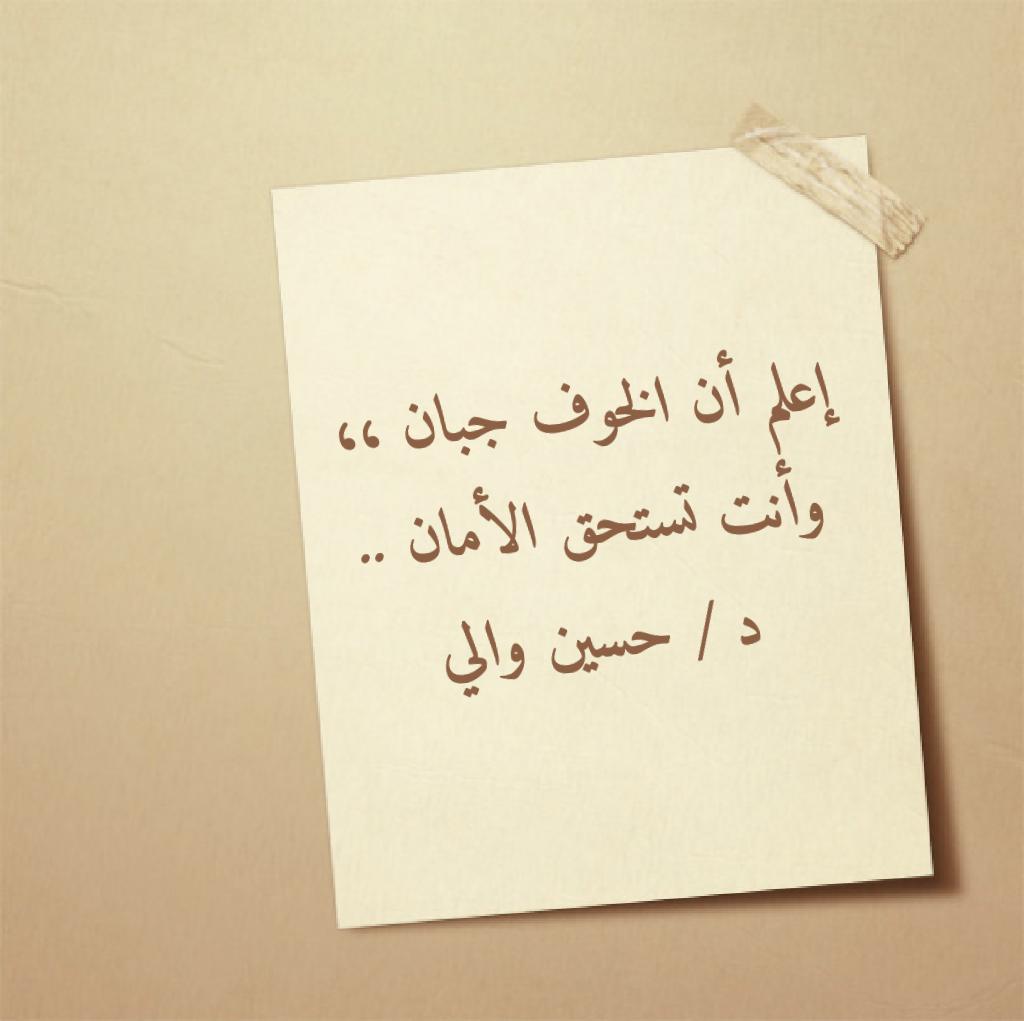 إعلم أن الخوف جبان ،،
وأنت تستحق الأمان ..
د / حسين والي